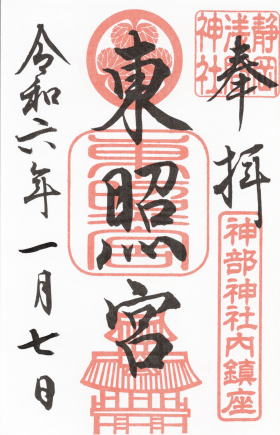 奉拝
静岡浅間神社
神部神社内鎮座
東照宮
東照宮
令和六年一月七日